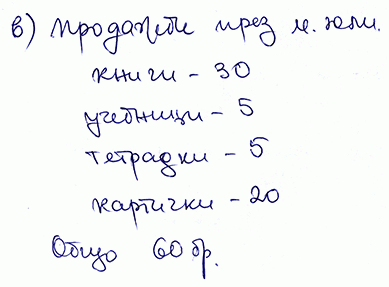 в) продажби през м. юли.
книги - 30
учебници - 5
тетрадки - 5
картички - 20
Общо 60 бр.